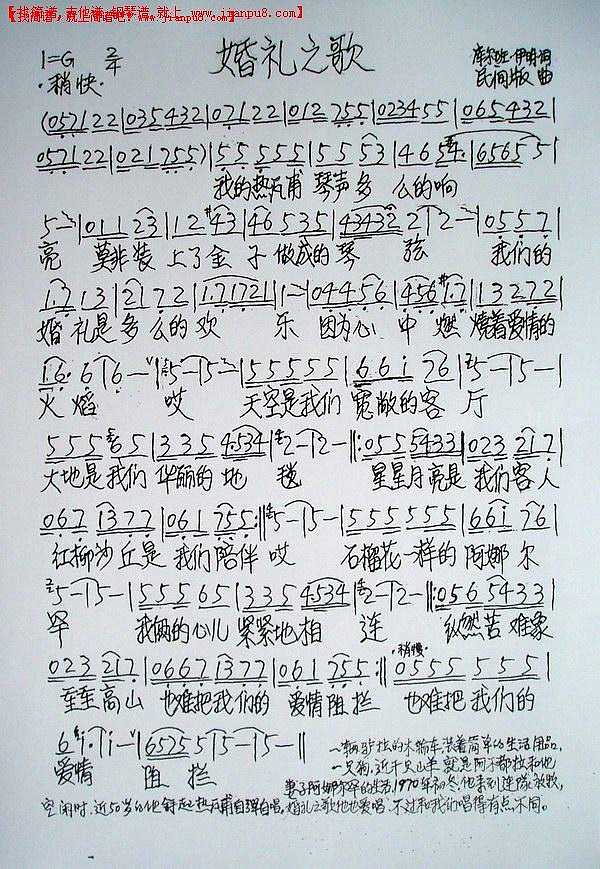 【找简谱，吉他谱，钢琴谱 就上 www.jianpu8.com】
婚礼之歌
1=G 2/4
库尔班·伊明 词
·稍快·
民间版 曲
(057122|035432|07122|012755|023455|065432|
057122|021755)|55555|5553|465|65655|
我的热瓦甫 琴声多 么的响
5-|01123|1243|46535|434322-|0557|
亮 莫非装 上了金 子做成的琴 弦 我们的
1.713|2172|1.71721|1-|04456|4561.7|13272|
婚礼是多么的欢 乐 因为心 中燃 烧着爱情的
16 66-|5-5-|55555|66176|5-5-|
火焰 哎 天空是我们 宽敞的客 厅
55565|3354.534|2-2-|:0555433|023217|
大地是我们 华丽的地 毯 星星月亮是 我们客人
0671377|061755:|5-5-|555555|66176|
红柳沙丘是 我们陪伴 哎 石榴花一样的 阿娜尔
5-5-|55565|3354534|2-2-|:0565433|
罕 我俩的心儿 紧紧地相 连 纵然苦难象
023217|06671377|061755:|0555555|
·稍慢·
座座高山 也难把我们的 爱情阻拦 也难把我们的
6 1.1-|652555-5-||
爱情 阻拦
一辆驴拉的木轮车,装着简单的生活用品,
一只狗,近千只山羊 就是阿不都拉和他
妻子阿娜尔罕的生活,1970年初冬,他来到连队放牧,
空闲时,近50岁的他弹起热瓦甫自弹自唱,婚礼之歌他也爱唱,不过和我们唱得有点不同。